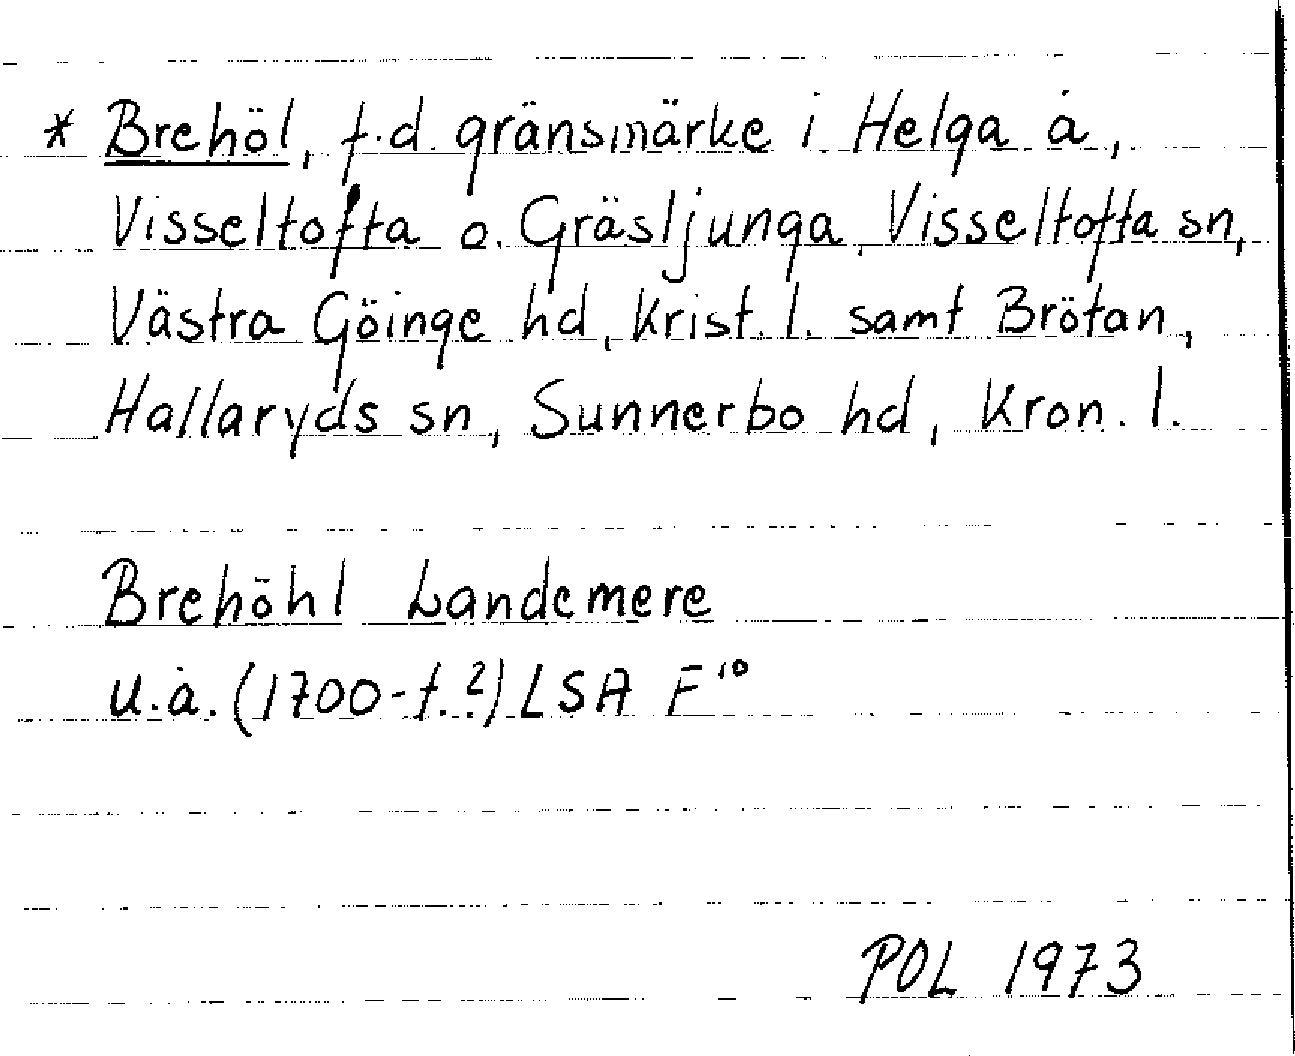 * Brehöl, f.d. gränsmärke i Helga å,
Visseltofta o. Gräsljunga, Visseltofta sn,
Västra Göinge hd, Krist. l. samt Brötan,
Hallaryds sn, Sunnerbo hd, Kron. l.
Brehöhl Landemere
u.å. (1700-t.?) LSA F¹⁰
POL 1973